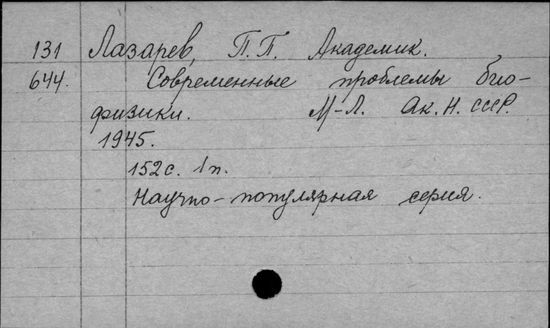 131 Лазарев, П.П. Академик.
644. Современные проблемы био-
физики. М-Л. Ак. Н. СССР.
1945.
152с. 1п.
Научно-популярная серия.